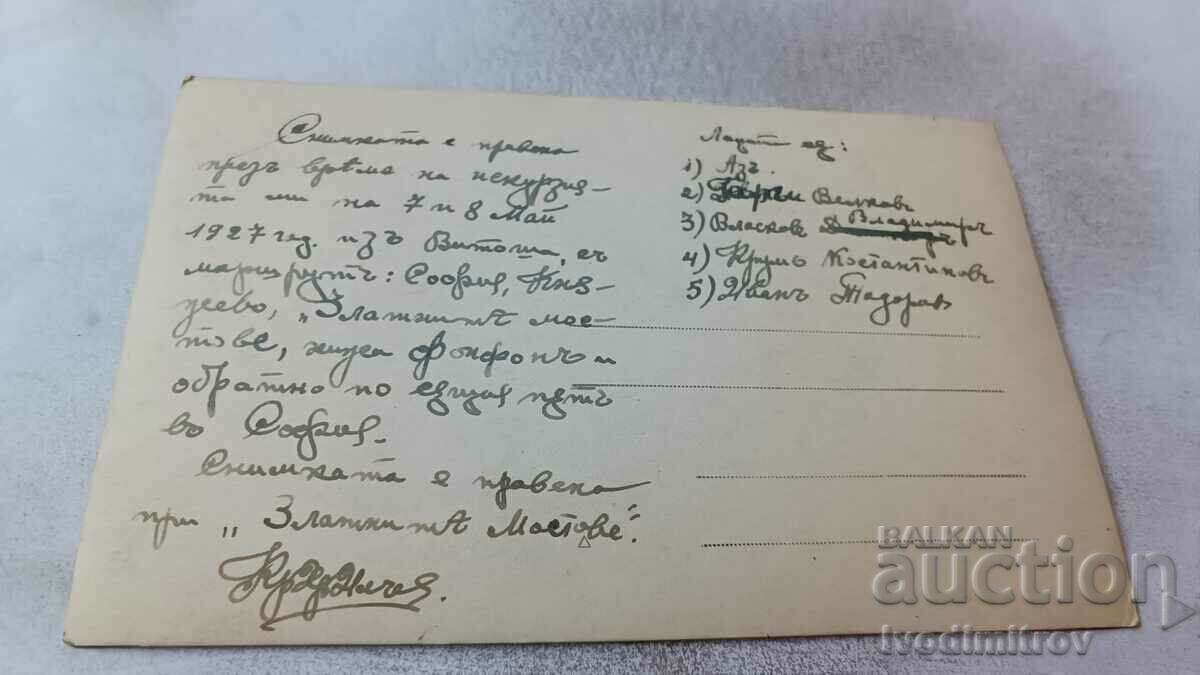 Снимката е правена
презъ врѣме на искурзия-
та ми на 7 и 8 Май
1927 год. изъ Витоша, съ
маршрутъ: София, Кня-
жево, „Златнитѣ мос-
тове, хижа Фонфонъ и
обратно по същия пѫть
во София.
Снимката е правена
при „Златнитѣ Мостове“.
Лицата са:
1) Азъ.
2) Велковъ
3) Власковъ Владимиръ
4) Крумъ Костантиновъ
5) Иванъ Тодоровъ
BALKAN
auction
ivodimitrov